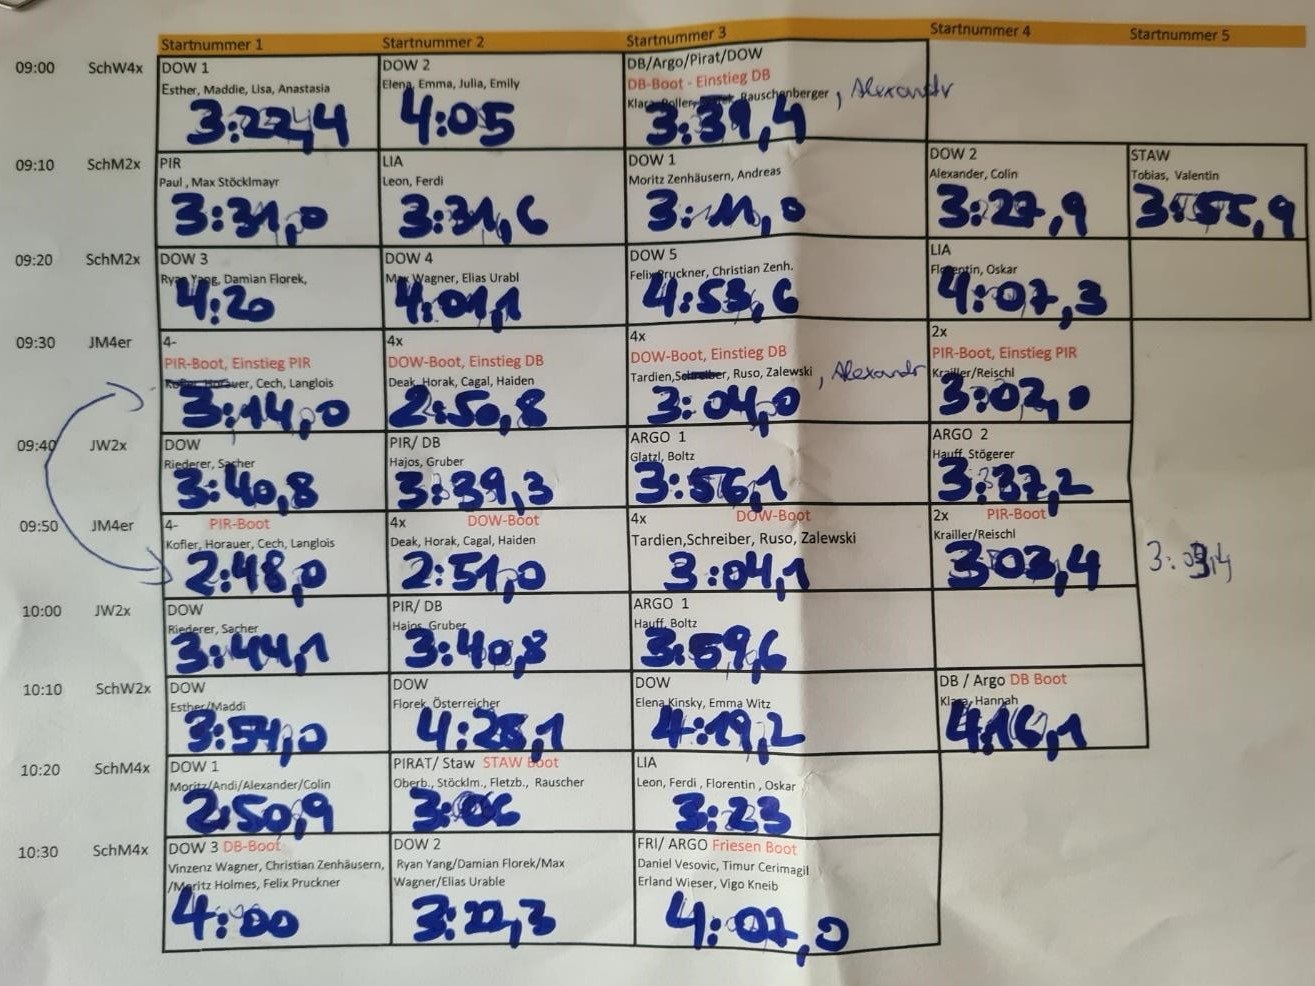 Startnummer 1 Startnummer 2 Startnummer 3 Startnummer 4 Startnummer 5
09:00 SchW4x
DOW 1
Esther, Maddie, Lisa, Anastasia
3:22,4
DOW 2
Elena, Emma, Julia, Emily
4:05
DB/Argo/Pirat/DOW
DB-Boot - Einstieg DB
Klara Rauschenberger , Alexandr
3:39,4
09:10 SchM2x
PIR
Paul , Max Stöcklmayr
3:31,0
LIA
Leon, Ferdi
3:31,6
DOW 1
Moritz Zenhäusern, Andreas
3:11,0
DOW 2
Alexander, Colin
3:27,9
STAW
Tobias, Valentin
3:55,9
09:20 SchM2x
DOW 3
Ryan Yang, Damian Florek,
4:20
DOW 4
Max Wagner, Elias Urabl
4:01,1
DOW 5
Felix Pruckner, Christian Zenh.
4:53,6
LIA
Florentin, Oskar
4:07,3
09:30 JM4er
4-
PIR-Boot, Einstieg PIR
Kofler, Horauer, Cech, Langlois
3:14,0
4x
DOW-Boot, Einstieg DB
Deak, Horak, Cagal, Haiden
2:50,8
4x
DOW-Boot, Einstieg DB
Tardien,Schreiber, Ruso, Zalewski , Alexandr
3:04,0
2x
PIR-Boot, Einstieg PIR
Krailler/Reischl
3:02,0
09:40 JW2x
DOW
Riederer, Sacher
3:40,8
PIR/ DB
Hajos, Gruber
3:39,3
ARGO 1
Glatzl, Boltz
3:56,1
ARGO 2
Hauff, Stögerer
3:37,2
09:50 JM4er
4- PIR-Boot
Kofler, Horauer, Cech, Langlois
2:48,0
4x DOW-Boot
Deak, Horak, Cagal, Haiden
2:51,0
4x DOW-Boot
Tardien,Schreiber, Ruso, Zalewski
3:04,1
2x PIR-Boot
Krailler/Reischl
3 03,4
3:03,4
10:00 JW2x
DOW
Riederer, Sacher
3:44,1
PIR/ DB
Hajos, Gruber
3:40,8
ARGO 1
Hauff, Boltz
3:59,6
10:10 SchW2x
DOW
Esther/Maddi
3:54,0
DOW
Florek, Österreicher
4:28,1
DOW
Elena Kinsky, Emma Witz
4:19,2
DB / Argo DB Boot
Klara, Hannah
4:16,1
10:20 SchM4x
DOW 1
Moritz/Andi/Alexander/Colin
2:50,9
PIRAT/ Staw STAW Boot
Oberb., Stöcklm., Fletzb., Rauscher
3:06
LIA
Leon, Ferdi , Florentin , Oskar
3:23
10:30 SchM4x
DOW 3 DB-Boot
Vinzenz Wagner, Christian Zenhäusern,
/Moritz Holmes, Felix Pruckner
4:00
DOW 2
Ryan Yang/Damian Florek/Max
Wagner/Elias Urable
3:22,3
FRI/ ARGO Friesen Boot
Daniel Vesovic, Timur Cerimagil
Erland Wieser, Vigo Kneib
4:07,0